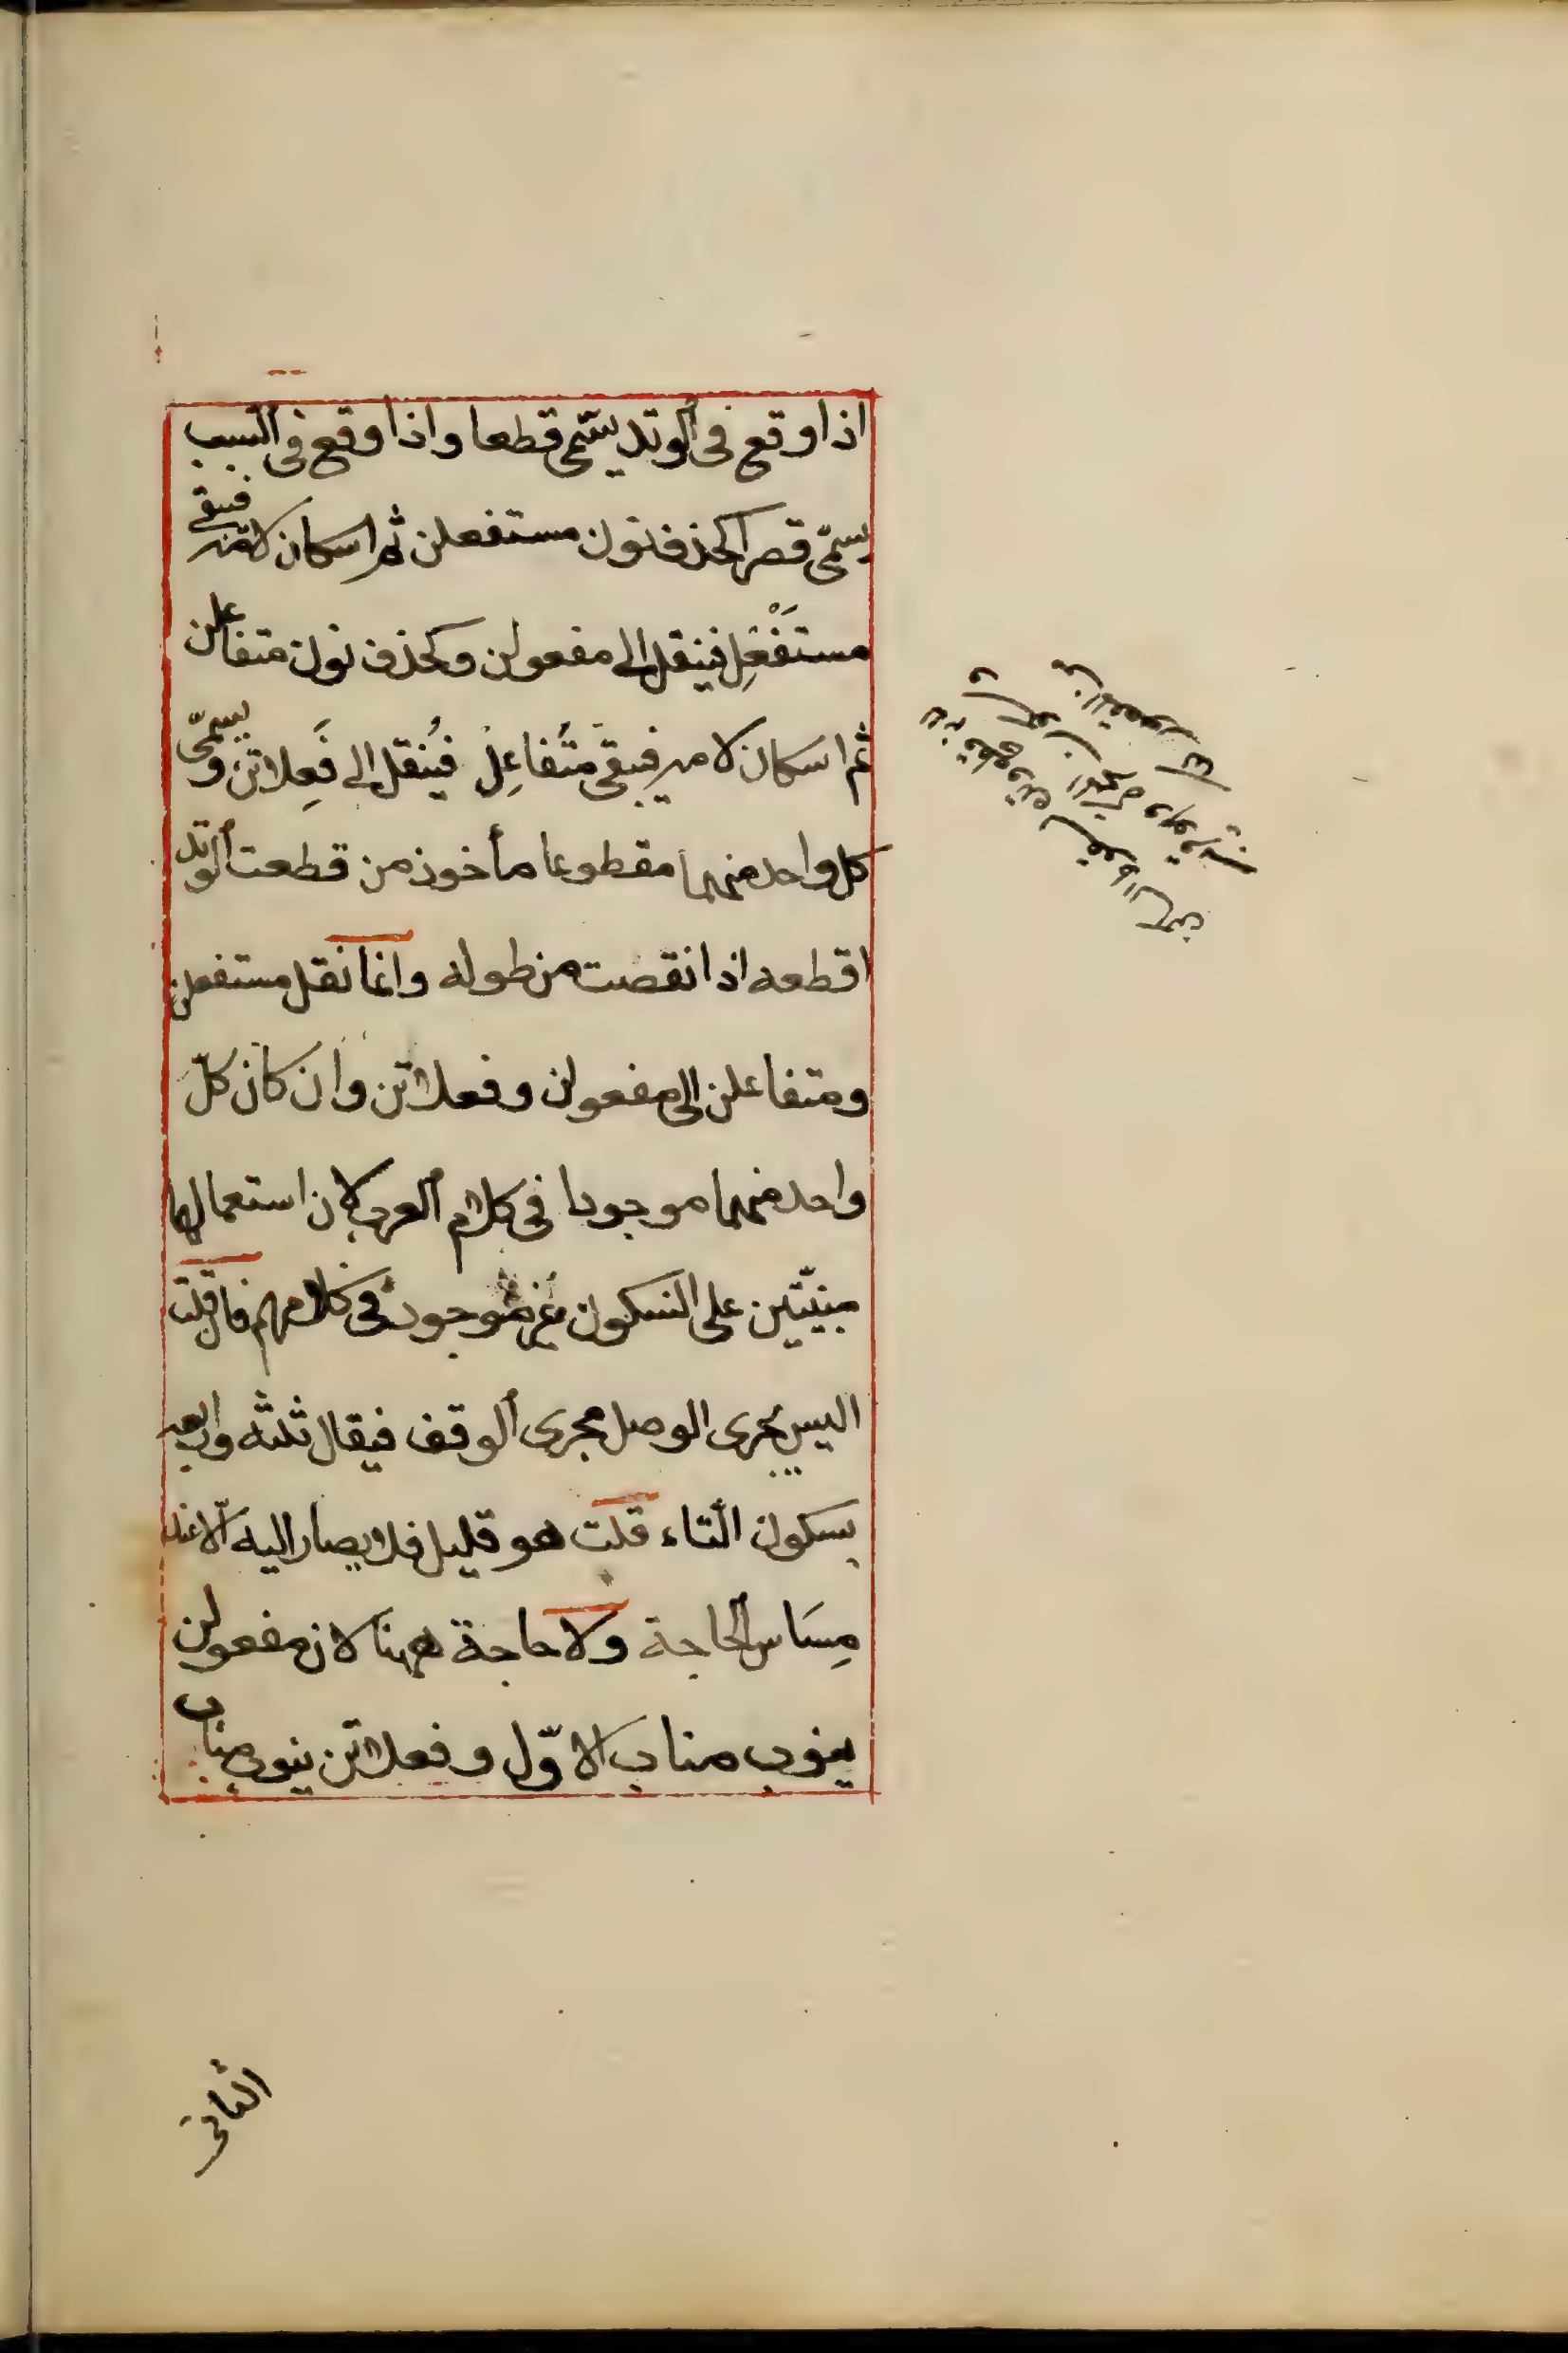 اذا وقع فى الوتد يسمّى قطعا واذا وقع فى السبب
يسمّى قصرا كحذف نون مستفعلن ثم اسكان لامه فيبقى
مستفْعِل فينقل الى مفعولن وكحذف نون متفاعلن
ثم اسكان لامه فيبقى متَفاعِلْ فيُنقل الى فَعِلاتن ويسمّى
كل واحد منهما مقطوعا مأخوذ من قطعت الوتد
اقطعه اذا نقصت من طوله وانما نقل مستفعلن
ومتفاعلن الى مفعولن وفعلاتن وان كان كلّ
واحد منهما موجودا فى كلام العرب لان استعمالهما
مبنيّتين على السكون غير موجود فى كلامهم فان قلت
اليس يجرى الوصل مجرى الوقف فيقال ثلثه واربعه
بسكون التاء قلت هو قليل فلا يصار اليه الّا عند
مِسَاس الحاجة ولا حاجة ههنا لان مفعولن
ينوب مناب الاوّل وفعلاتن ينوب مناب
الثانى